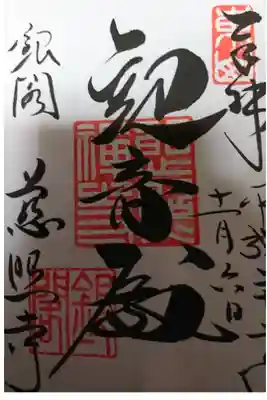 奉拝 平成二十
十一月六日
観音殿
銀閣
慈照寺